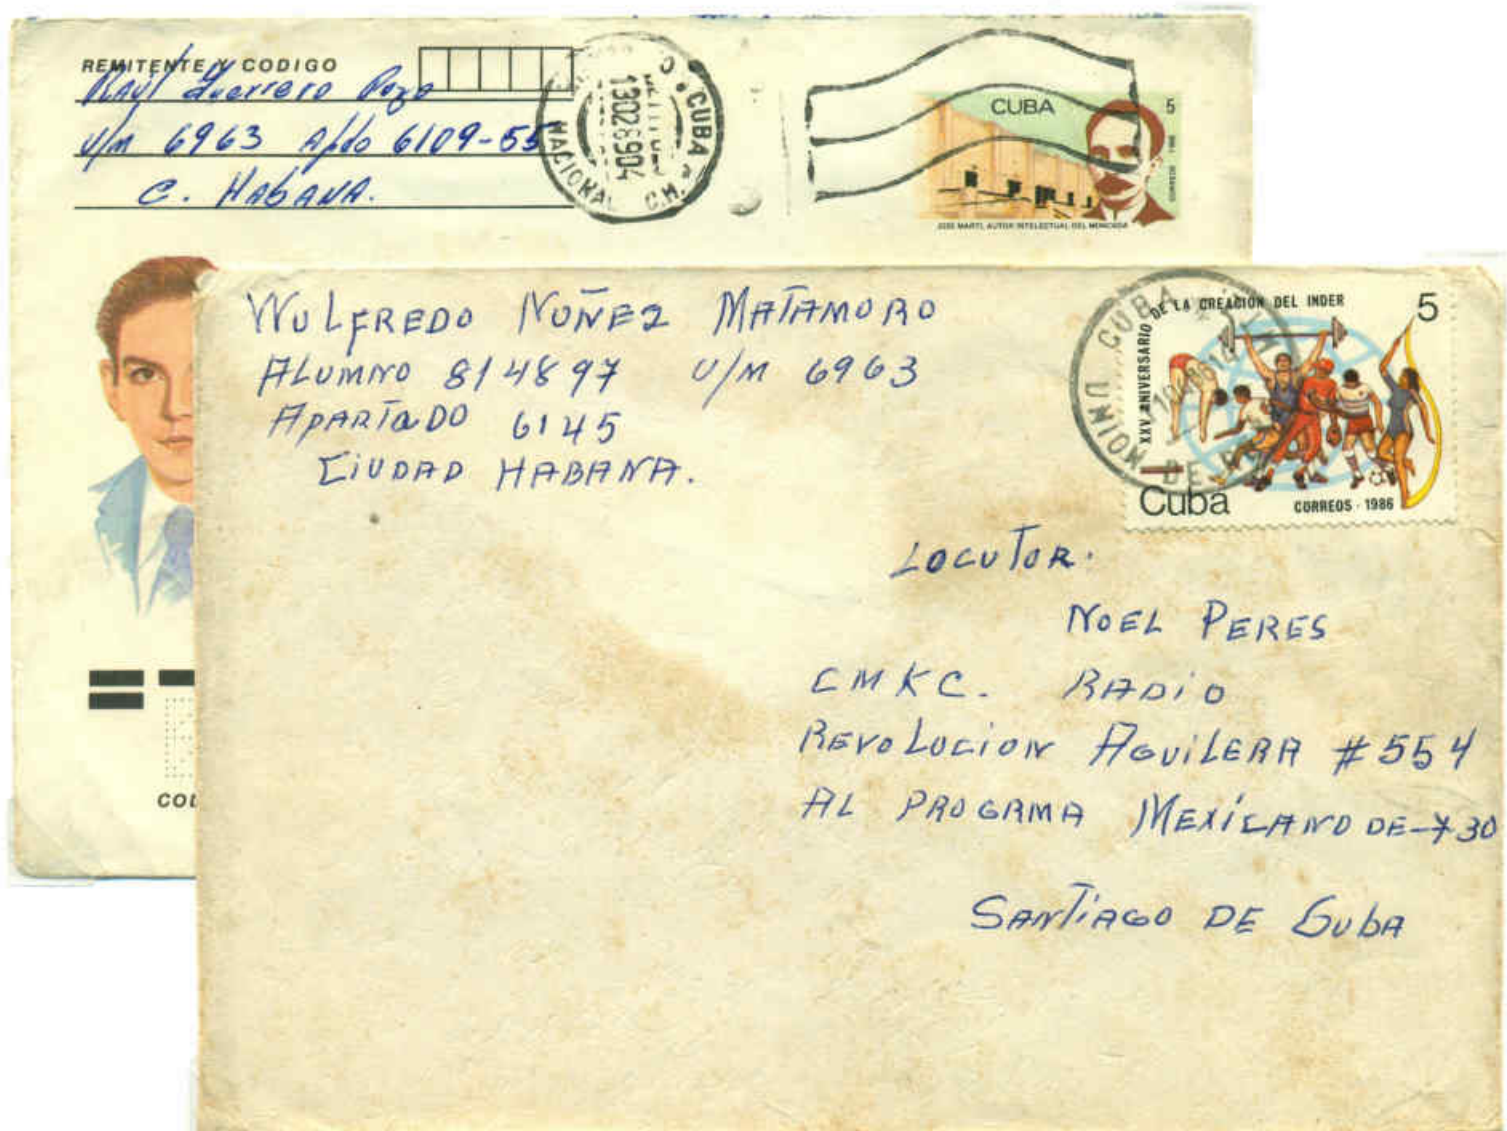 REMITENTE Y CODIGO
Raúl Guerrero Pozo
U/M 6963 Apdo 6109-55
C. HABANA.
CUBA
NACIONAL C.H.
CUBA 5
JOSE MARTI, AUTOR INTELECTUAL DEL MONCADA
COD
WULFREDO NUÑEZ MATAMORO
ALUMNO 814897 U/M 6963
APARTADO 6145
CIUDAD HABANA.
UNION DE
CUBA
XXV ANIVERSARIO DE LA CREACION DEL INDER
5
Cuba
CORREOS - 1986
LOCUTOR.
NOEL PERES
CMKC. RADIO
REVOLUCION AGUILERA #554
AL PROGRMA MEXICANO DE 730
SANTIAGO DE CubA